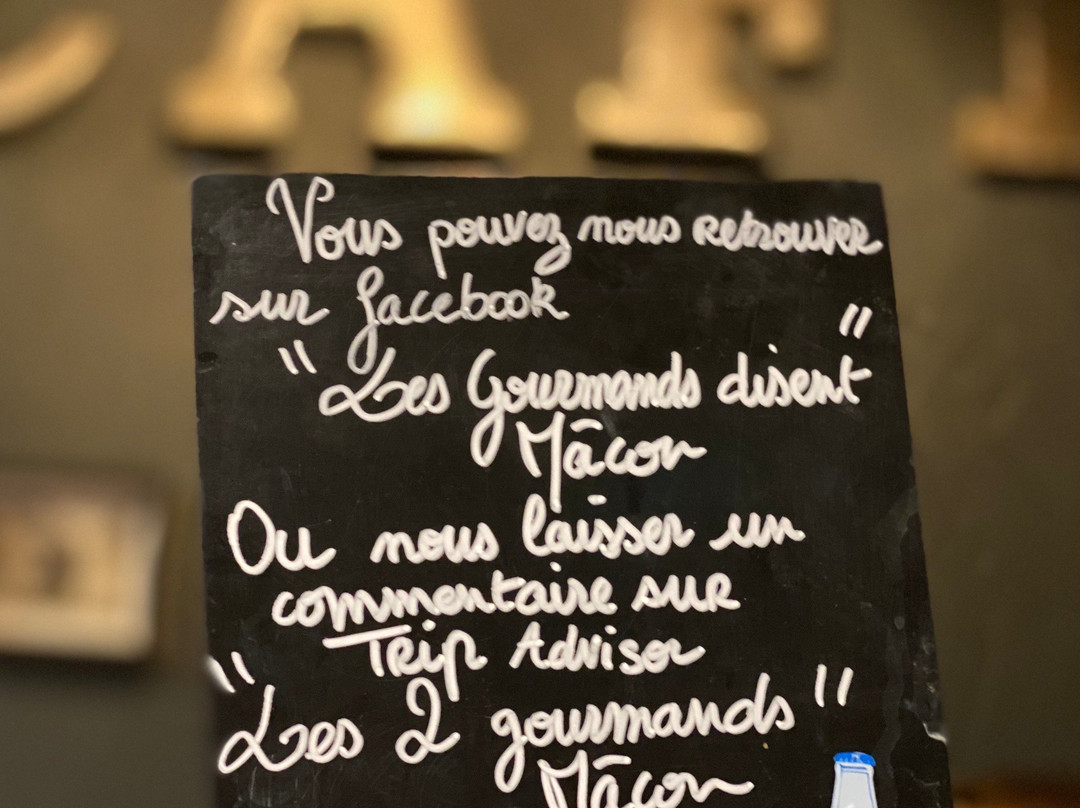 CAFÉ
Vous pouvez nous retrouver
sur facebook
"Les Gourmands disent"
Mâcon
Ou nous laisser un
commentaire sur
Trip Advisor
"Les 2 gourmands"
Mâcon